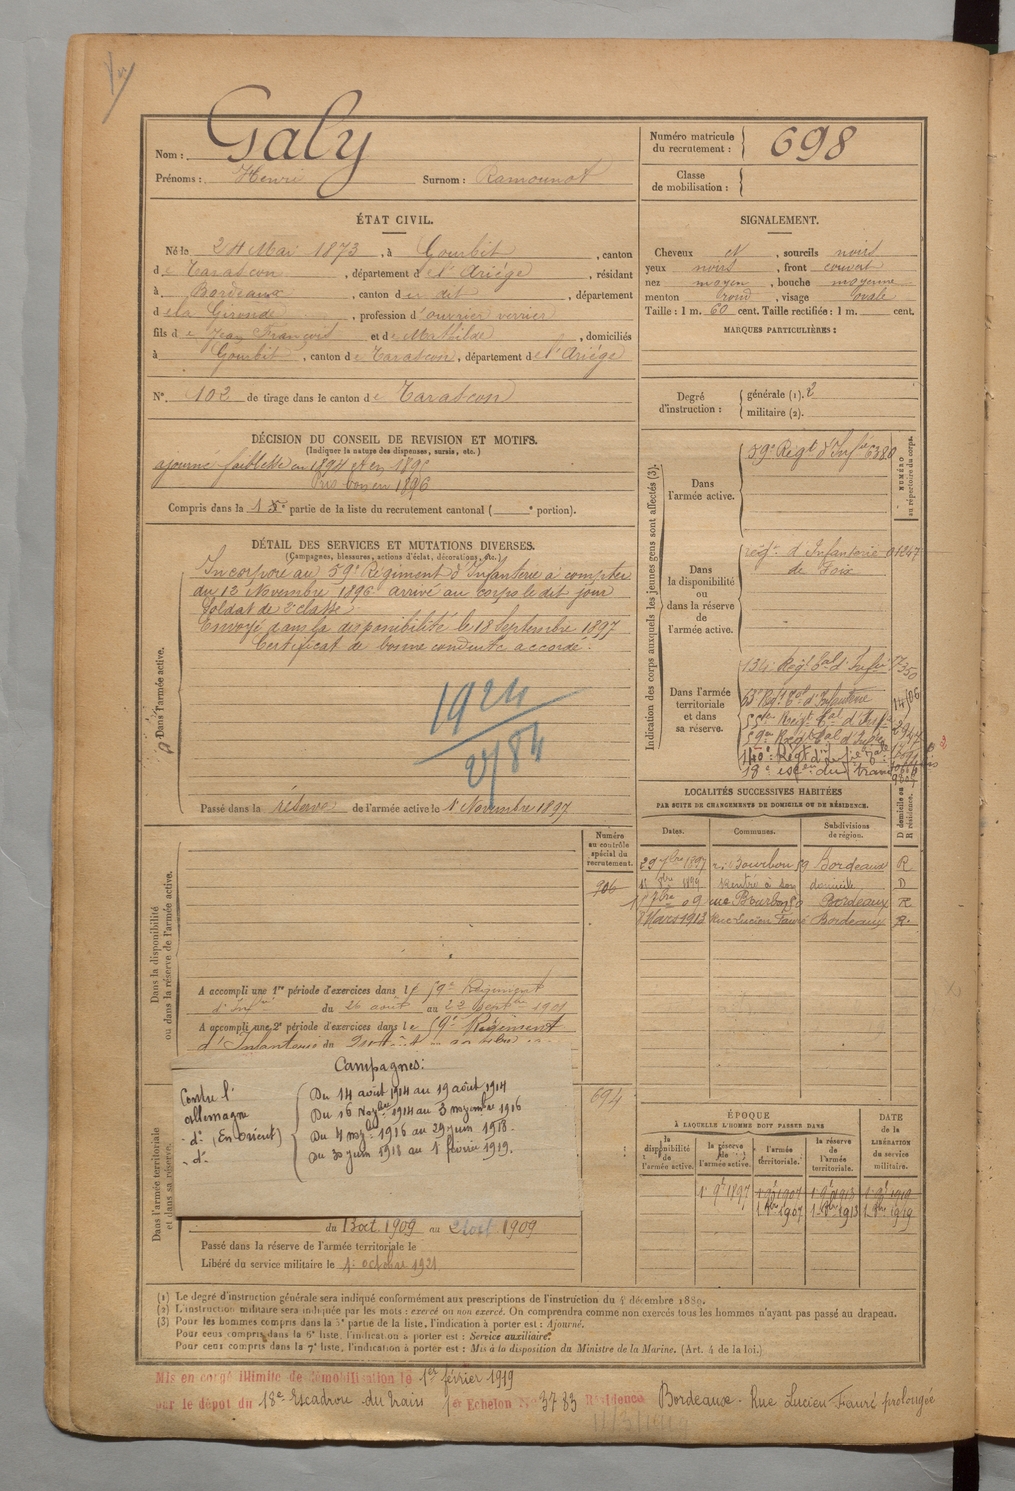 Nom : Galy
Prénoms : Henri Surnom : Ramounot
Numéro matricule du recrutement : 698
Classe de mobilisation :
ÉTAT CIVIL.
Né le 24 Mai 1873, à Gourbit, canton
de Tarascon, département de l'Ariége, résidant
à Bordeaux, canton du dit, département
de la Gironde, profession d'ouvrier verrier
fils de Jean François et de Mathilde, domiciliés
à Gourbit, canton de Tarascon, département de l'Ariége
N° 102 de tirage dans le canton de Tarascon
SIGNALEMENT.
Cheveux N, sourcils noirs
yeux noirs, front couvert
nez moyen, bouche moyenne
menton rond, visage ovale
Taille : 1 m. 60 cent. Taille rectifiée : 1 m. cent.
MARQUES PARTICULIÈRES :
Degré d'instruction : générale (1). 2
militaire (2).
DÉCISION DU CONSEIL DE REVISION ET MOTIFS.
(Indiquer la nature des dispenses, sursis, etc.)
ajourné faiblesse en 1894 et en 1895
Pris bon en 1896
Compris dans la 5e partie de la liste du recrutement cantonal ( e portion).
DÉTAIL DES SERVICES ET MUTATIONS DIVERSES.
(Campagnes, blessures, actions d'éclat, décorations, etc.)
Dans l'armée active.
Incorporé au 59e Régiment d'Infanterie à compter
du 12 Novembre 1896 arrivé au corps le dit jour
Soldat de 2e classe
Envoyé dans la disponibilité le 18 Septembre 1897
Certificat de bonne conduite accordé.
1924
Passé dans la réserve de l'armée active le 1r Novembre 1897
Indication des corps auxquels les jeunes gens sont affectés (3).
NUMÉRO au répertoire du corps.
Dans l'armée active.
59e Régt d'Infrie 6380
Dans la disponibilité ou dans la réserve de l'armée active.
regt d'Infanterie 01847
de Foix
Dans l'armée territoriale et dans sa réserve.
134e Régt tal d'Infie
Régt tal d'Infanterie
Régt tal d'Infie
59e Régt tal d'Infie
140e Régt
18e escon du train
LOCALITÉS SUCCESSIVES HABITÉES
PAR SUITE DE CHANGEMENTS DE DOMICILE OU DE RÉSIDENCE.
Dates. Communes. Subdivisions de région. D domicile ou R résidence.
29 7bre 1897 r. Bourbon 59 Bordeaux R
1899 Rentré à son domicile D
09 rue Bourbon 59 Bordeaux R
8 Mars 1913 Rue Lucien Faure Bordeaux R.
Dans la disponibilité ou dans la réserve de l'armée active.
Numéro au contrôle spécial du recrutement.
906
A accompli une 1re période d'exercices dans le 59e Régiment
d'Infie du 26 août au 22 septbre 1901
A accompli une 2e période d'exercices dans le 59e Régiment
d'Infanterie du
Campagnes :
Contre l'allemagne
Du 14 août 1914 au 19 août 1914
Du 16 Novbre 1914 au 3 novembre 1916
do (En Orient) Du 4 nov. 1916 au 29 juin 1918.
do Du 30 juin 1918 au 1er février 1919.
694
Dans l'armée territoriale et dans sa réserve.
du 13 oct. 1909 au 21 oct 1909
Passé dans la réserve de l'armée territoriale le
Libéré du service militaire le 1er octobre 1921
ÉPOQUE
À LAQUELLE L'HOMME DOIT PASSER DANS
DATE de la LIBÉRATION du service militaire.
la disponibilité de l'armée active.
la réserve de l'armée active.
l'armée territoriale.
la réserve de l'armée territoriale.
1r 9bre 1897 1r 9bre 1907 1r 9bre 1913 1r 9bre 1919
1r 8bre 1907 1r 8bre 1913 1r 8bre 1919
(1) Le degré d'instruction générale sera indiqué conformément aux prescriptions de l'instruction du 4 décembre 1889.
(2) L'instruction militaire sera indiquée par les mots : exercé ou non exercé. On comprendra comme non exercés tous les hommes n'ayant pas passé au drapeau.
(3) Pour les hommes compris dans la 5e partie de la liste, l'indication à porter est : Ajourné.
Pour ceux compris dans la 6e liste, l'indication à porter est : Service auxiliaire.
Pour ceux compris dans la 7e liste, l'indication à porter est : Mis à la disposition du Ministre de la Marine. (Art. 4 de la loi.)
Mis en congé illimité de démobilisation le 1er février 1919
par le dépôt du 18e Escadron du train 1er Echelon No 3783 Résidence Bordeaux. Rue Lucien Fauré prolongée